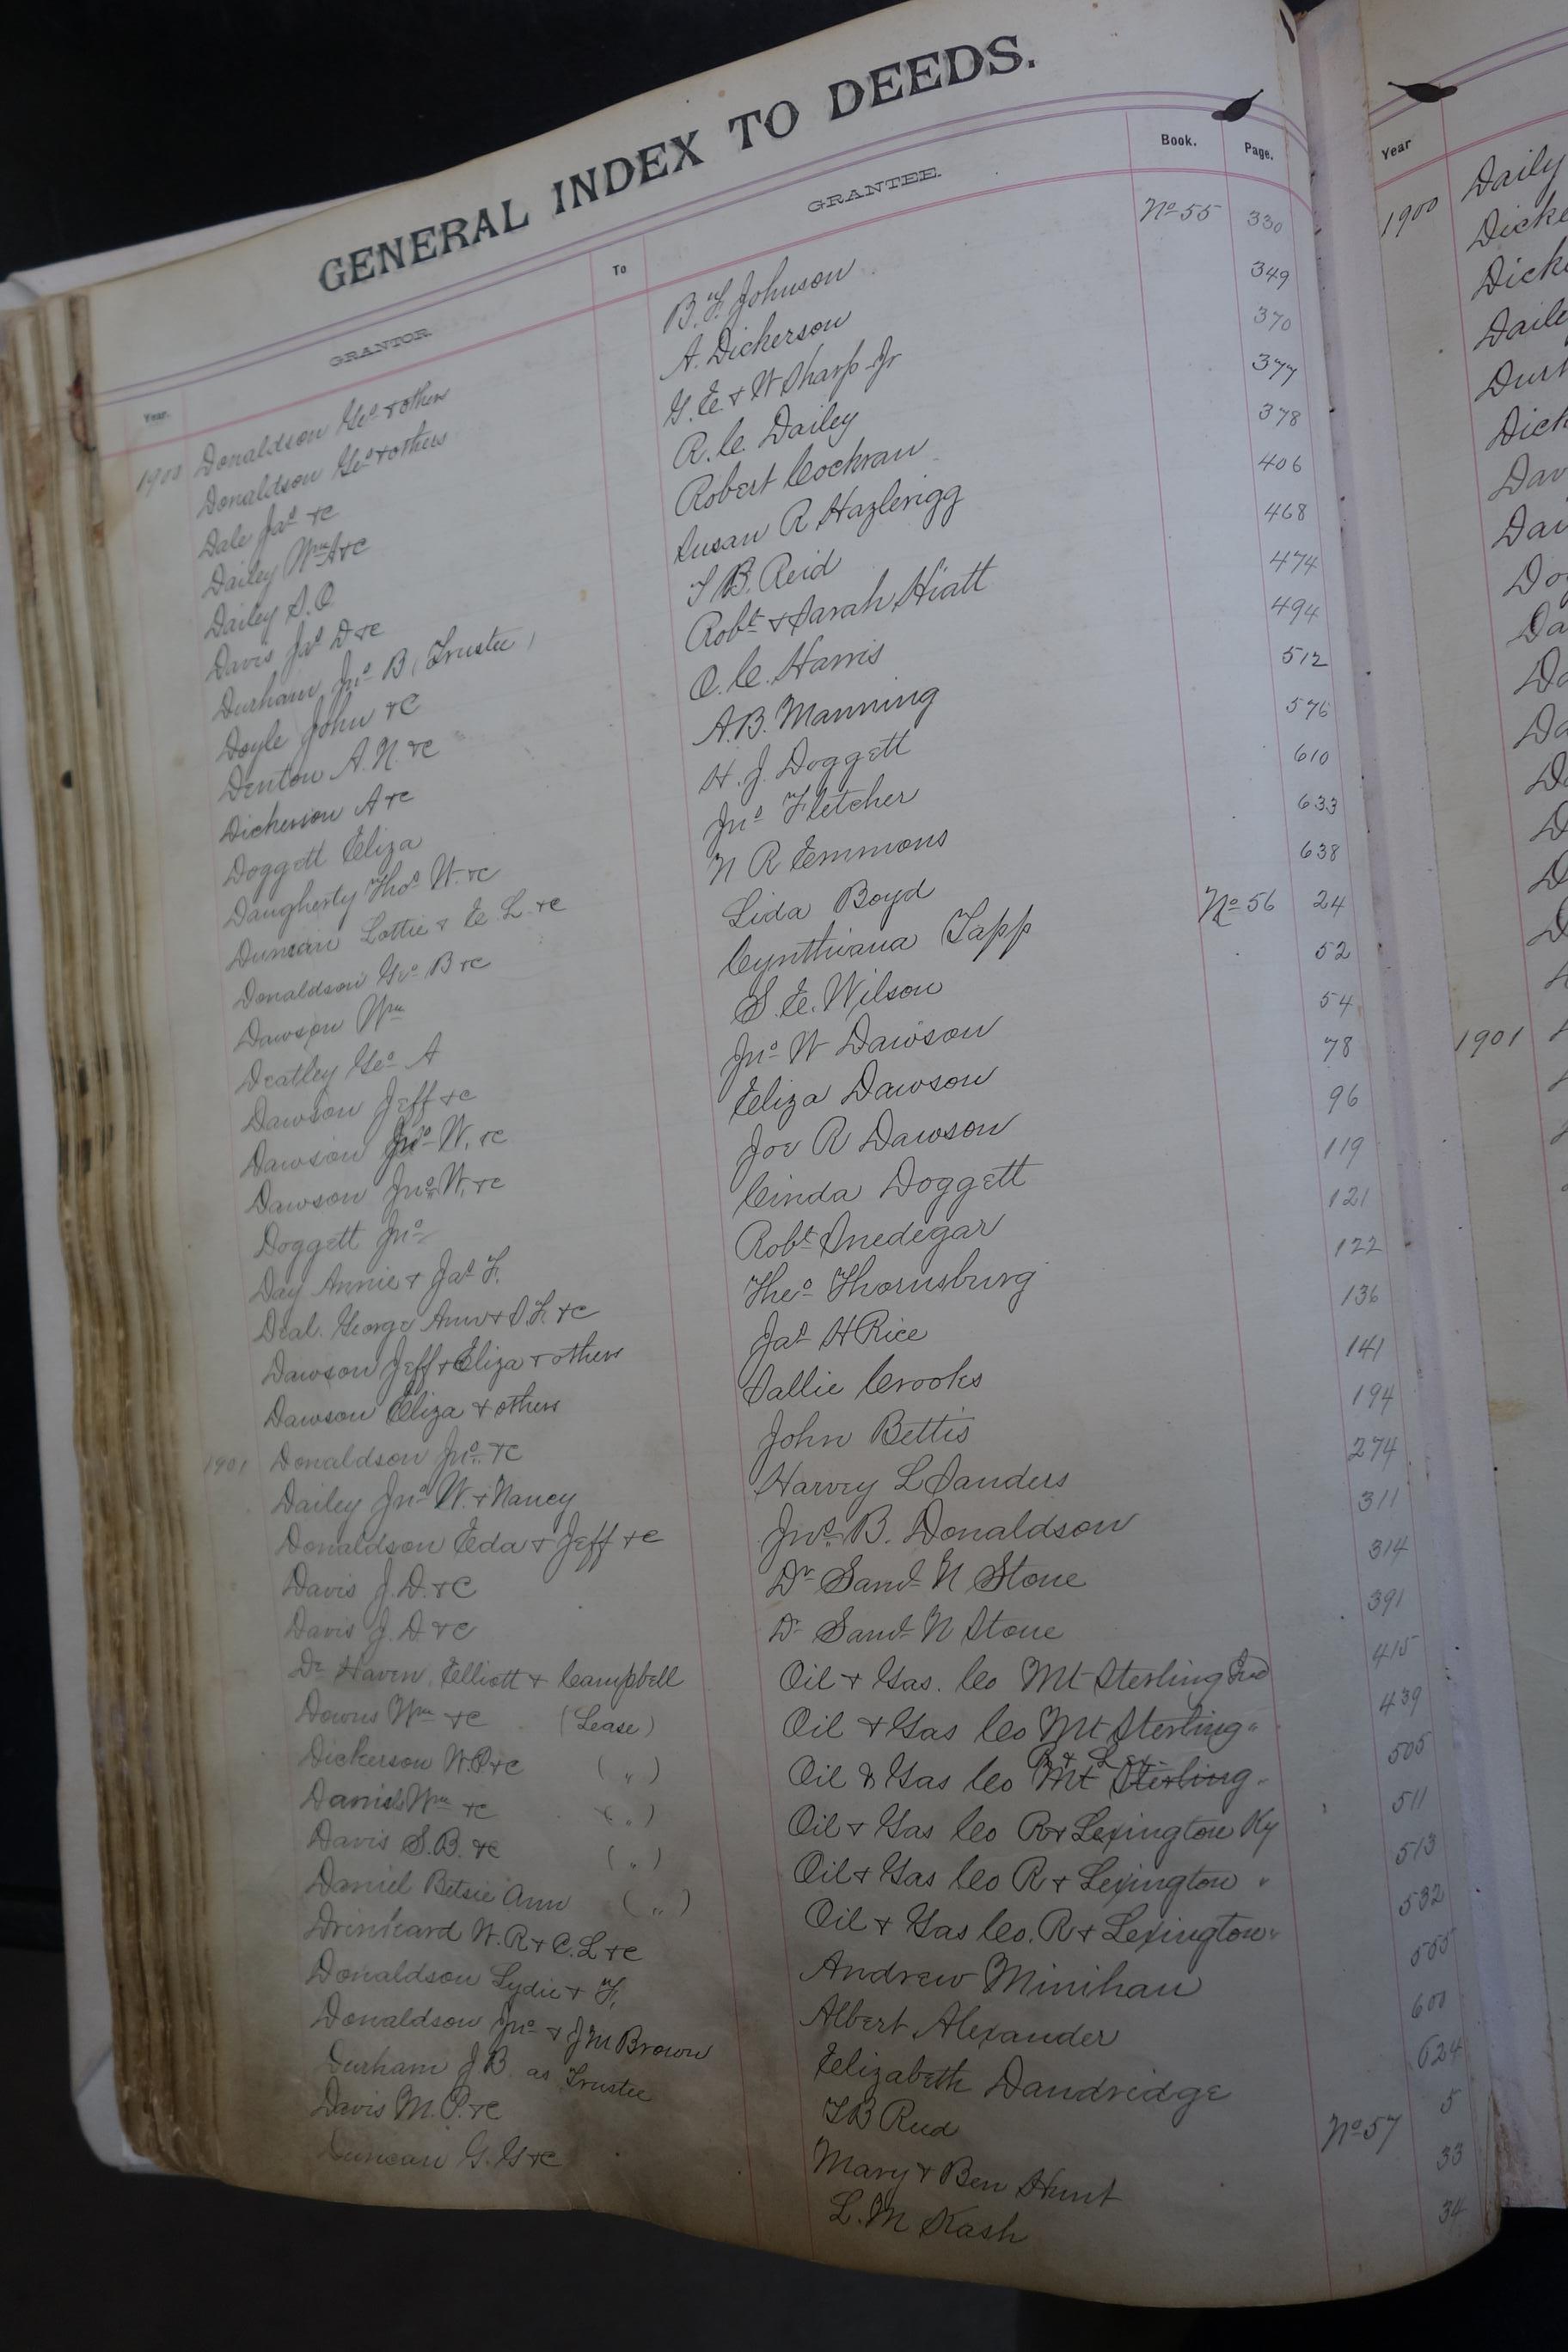 GENERAL INDEX TO DEEDS.
Year. GRANTOR To GRANTEE. Book. Page.
1900 Donaldson Geo & others B. F. Johnson No 55 330
Donaldson Geo & others A. Dickerson 349
Dale Jas &c G. E. & W Sharp Jr 370
Dailey Wm A &c R. C. Dailey 377
Dailey S. O Robert Cochran 378
Davis Jas D &c Susan R Hazlerigg 406
Durham Jno B (Trustee) T B. Reid 468
Doyle John &c Robt & Sarah Hiatt 474
Denton A. N. &c O. C. Harris 494
Dickerson A &c A. B. Manning 512
Doggett Eliza H. J. Doggett 576
Daugherty Thos W. &c Jno Fletcher 610
Duncan Lottie & E. L. &c N R Emmons 633
Donaldson Geo B &c Lida Boyd 638
Dawson Wm Cynthiana Tapp No 56 24
Deatley Geo A S. E. Wilson 52
Dawson Jeff &c Jno W Dawson 54
Dawson Jno W. &c Eliza Dawson 78
Dawson Jno W. &c Joe R Dawson 96
Doggett Jno Cinda Doggett 119
Day Annie & Jas F. Robt Snedegar 121
Deal. George Ann & S. F. &c Theo Thornsburg 122
Dawson Jeff & Eliza & others Jas H Rice 136
Dawson Eliza & others Sallie Crooks 141
1901 Donaldson Jno &c John Bettis 194
Dailey Jno W. & Nancy Harvey L Sanders 274
Donaldson Eda & Jeff &c Jno B. Donaldson 311
Davis J. D. &c Dr Saml N Stone 314
Davis J. D &c Dr Saml N Stone 391
De Haven, Elliott & Campbell Oil & Gas. Co Mt Sterling Ind 415
Downs Wm &c (Lease) Oil & Gas Co Mt Sterling " 439
Dickerson W. P. &c ( " ) Oil & Gas Co R & Lex Mt Sterling " 505
Daniel Wm &c ( " ) Oil & Gas Co R & Lexington Ky 511
Davis S. B. &c ( " ) Oil & Gas Co R & Lexington " 513
Daniel Betsie Ann ( " ) Oil & Gas Co. R & Lexington " 532
Drinkard W. R & C. L &c Andrew Minihan 555
Donaldson Lydie & F. Albert Alexander 600
Donaldson Jno & J M Brown Elizabeth Dandridge 624
Durham J. B. as Trustee T B Reid No 57 5
Davis M. P. &c Mary & Ben Hunt 33
Duncan G. G &c L. M Kash 34
Year
1900 Daily
1901